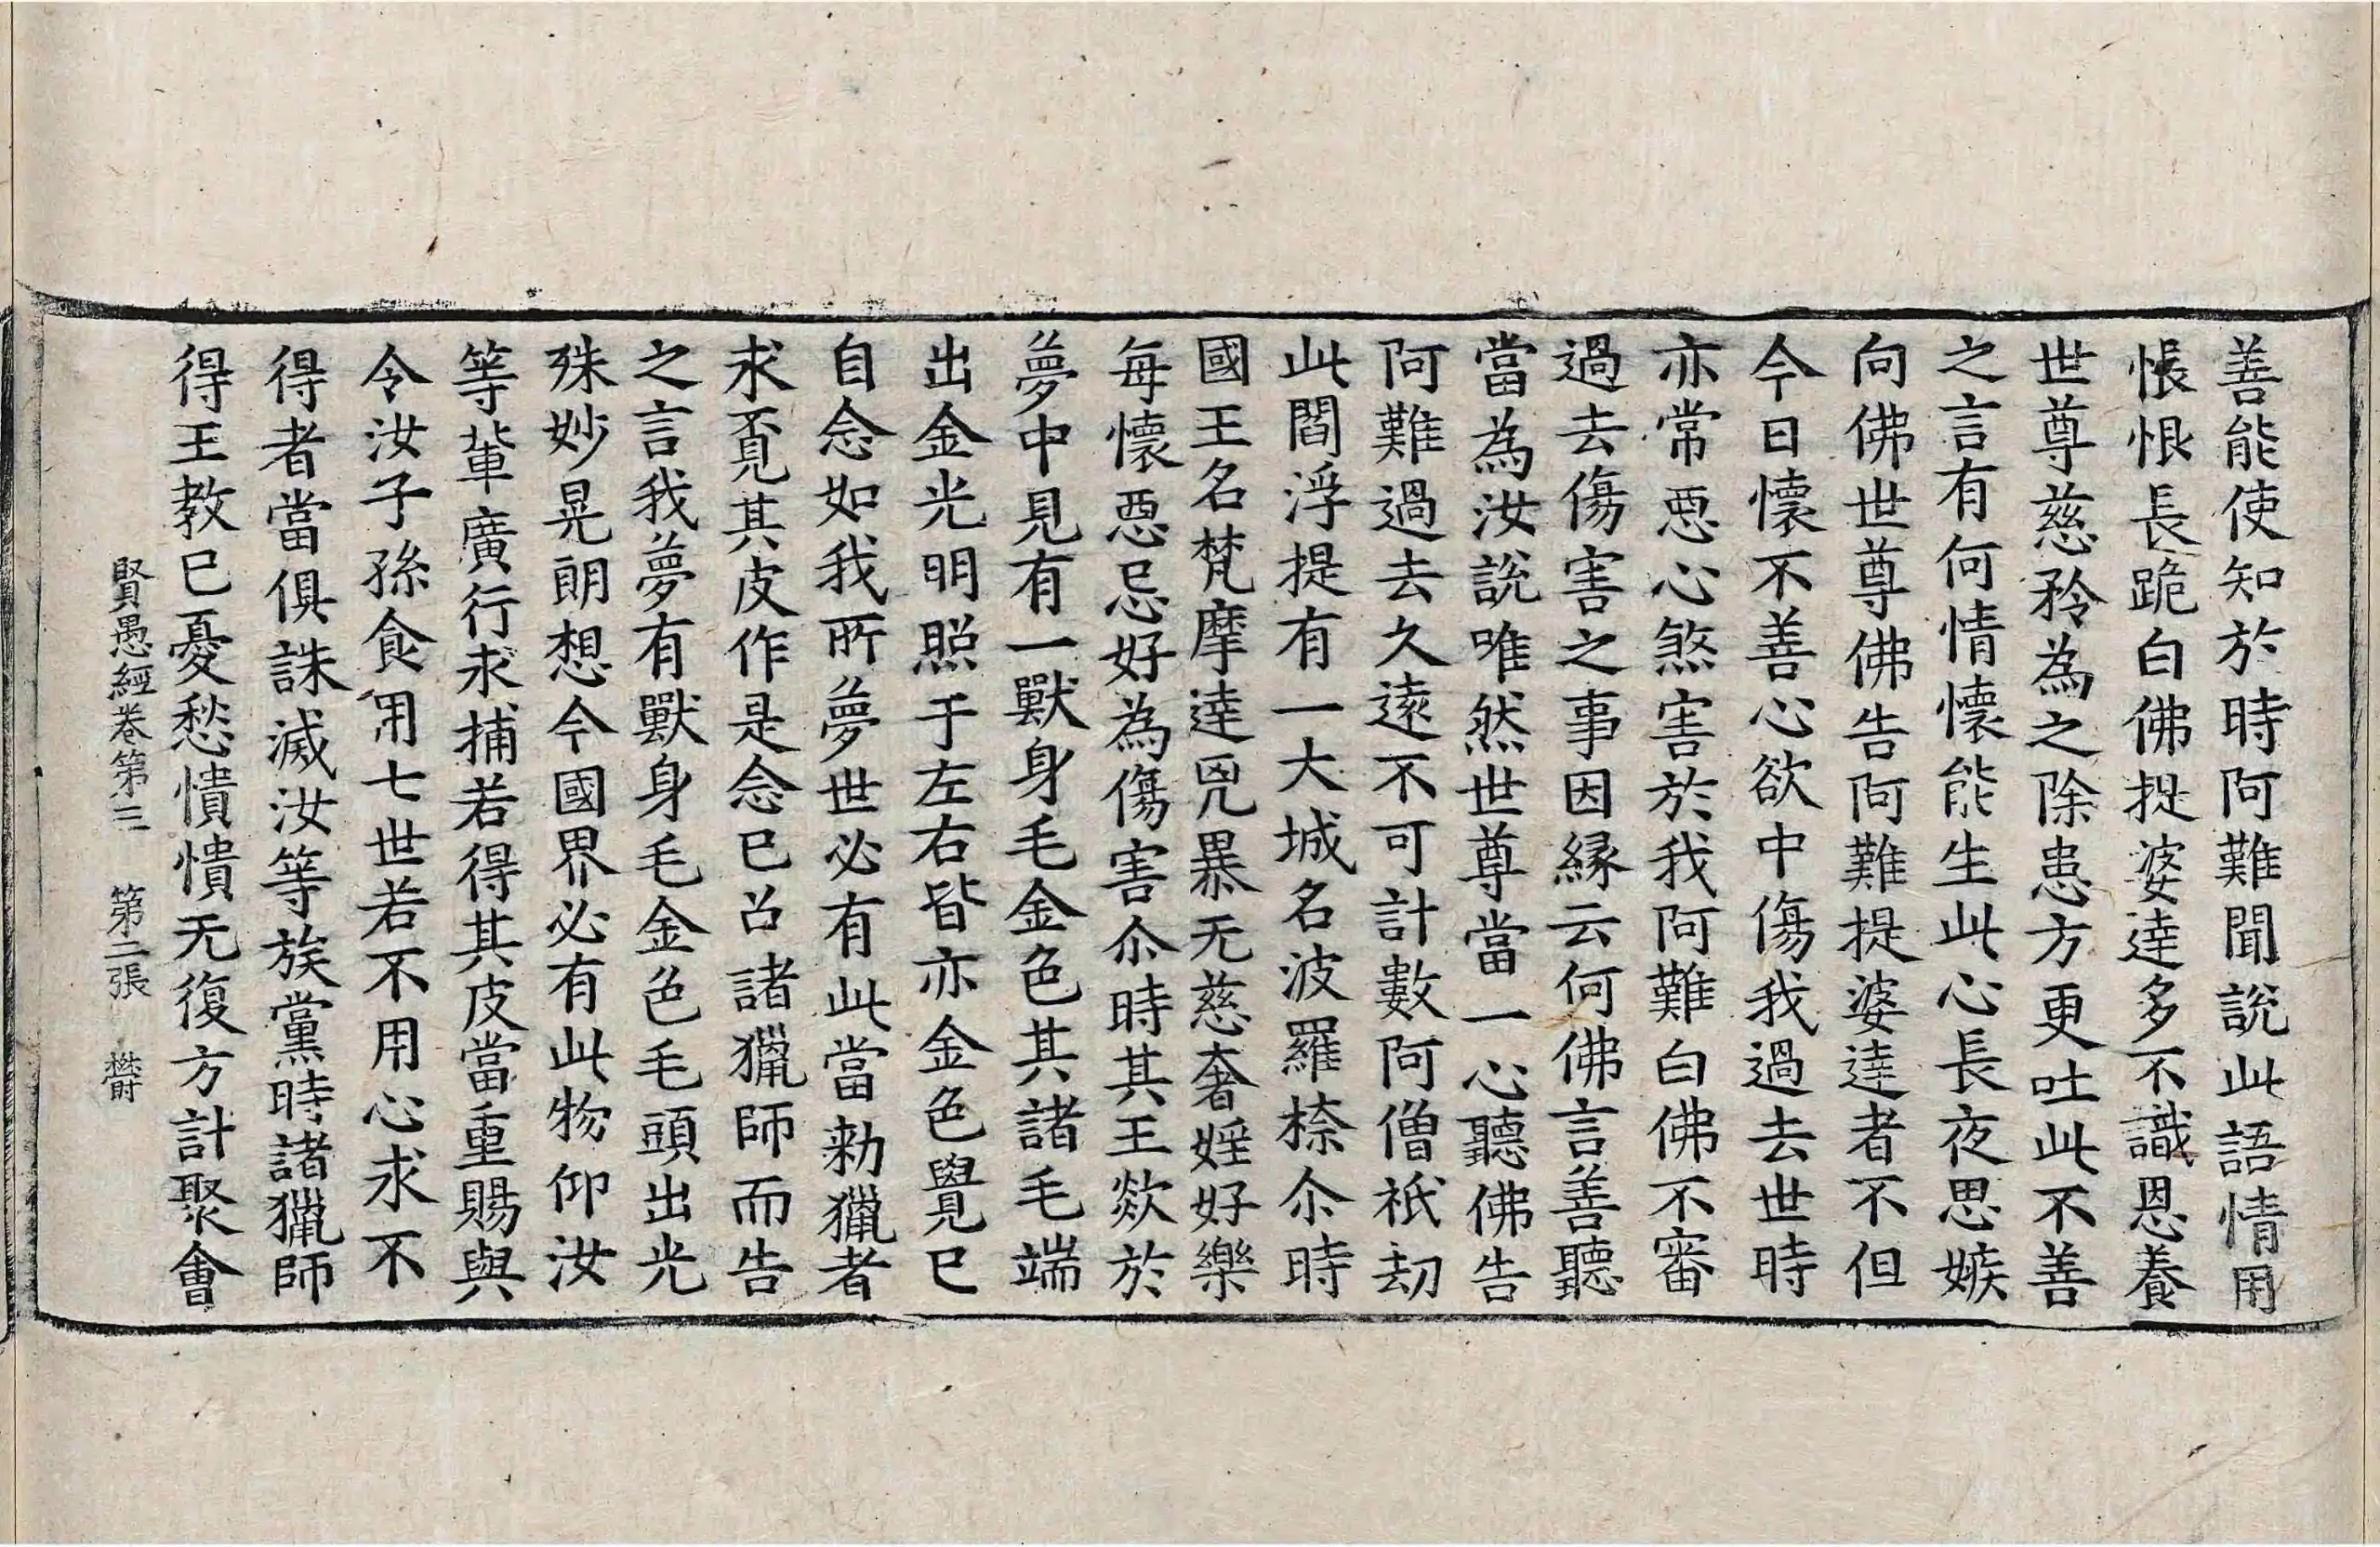 善能使知於時阿難聞說此語情用
悵恨長跪白佛提婆達多不識恩養
世尊慈矜為之除患方更吐此不善
之言有何情懷能生此心長夜思嫉
向佛世尊佛告阿難提婆達者不但
今日懷不善心欲中傷我過去世時
亦常惡心煞害於我阿難白佛不審
過去傷害之事因緣云何佛言善聽
當為汝說唯然世尊當一心聽佛告
阿難過去久遠不可計數阿僧祇劫
此閻浮提有一大城名波羅㮈尒時
國王名梵摩達兇暴无慈奢婬好樂
每懷惡忌好為傷害尒時其王欻於
夢中見有一獸身毛金色其諸毛端
出金光明照于左右皆亦金色覺已
自念如我所夢世必有此當勑獵者
求覓其皮作是念已召諸獵師而告
之言我夢有獸身毛金色毛頭出光
殊妙晃朗想今國界必有此物仰汝
等輩廣行求捕若得其皮當重賜與
令汝子孫食用七世若不用心求不
得者當俱誅滅汝等族黨時諸獵師
得王教已憂愁憒憒无復方計聚會
賢愚經卷第三 第二張 欝